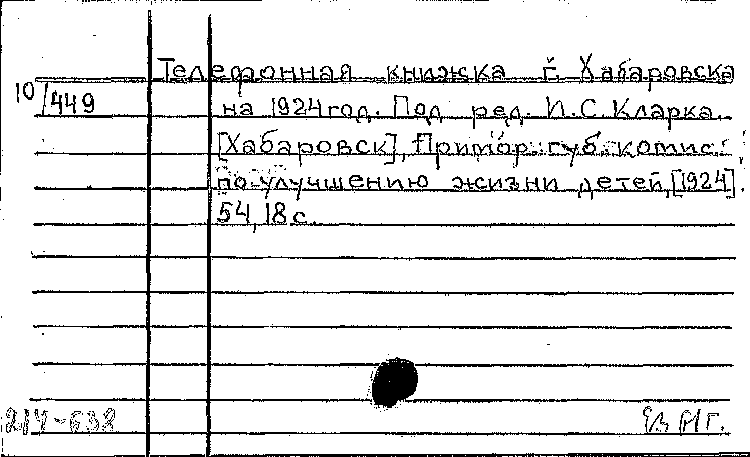 Телефонная книжка г. Хабаровска
10/449
на 1924 год. Под ред. И.С. Кларка.
[Хабаровск], Примор. губ. комис.
по улучшению жизни детей, [1924].
54, 18 с.
214-638